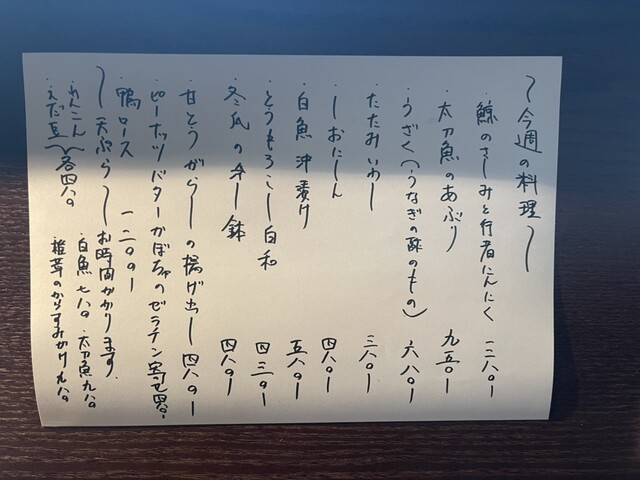 〜今週の料理〜
・鯨のさしみと行者にんにく 一二八〇ー
・太刀魚のあぶり 九五〇ー
・うざく(うなぎの酢のもの) 六八〇ー
・たたみいわし 三八〇ー
・しおにしん 四八〇ー
・白魚沖漬け 五八〇ー
・とうもろこし白和 四三〇ー
・冬瓜の冷し鉢 四八〇ー
・甘とうがらしの揚げ出し 四八〇ー
・ピーナッツバターかぼちゃのゼラチン寄せ 四八〇・
・鴨ロース 一二〇〇ー
〜天ぷら〜お時間かかります.
・れんこん
・えだ豆 各四八〇
・白魚 七八〇 ・太刀魚 九八〇
・椎茸のからすみかけ 九八〇